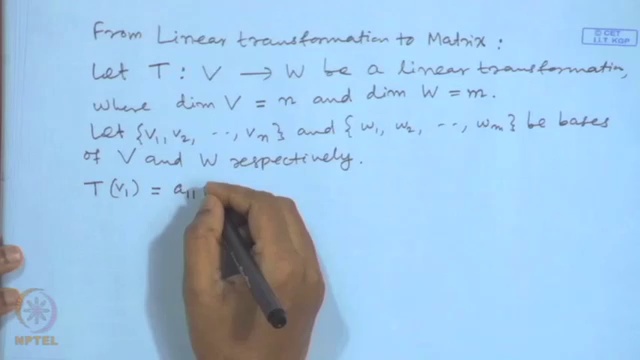 © CET
I.I.T. KGP
From Linear transformation to Matrix :
Let T : V → W be a linear transformation,
where dim V = n and dim W = m.
Let {v₁, v₂, ⋅⋅, vₙ} and {w₁, w₂, ⋅⋅, wₘ} be bases
of V and W respectively.
T(v₁) = a₁₁
NPTEL